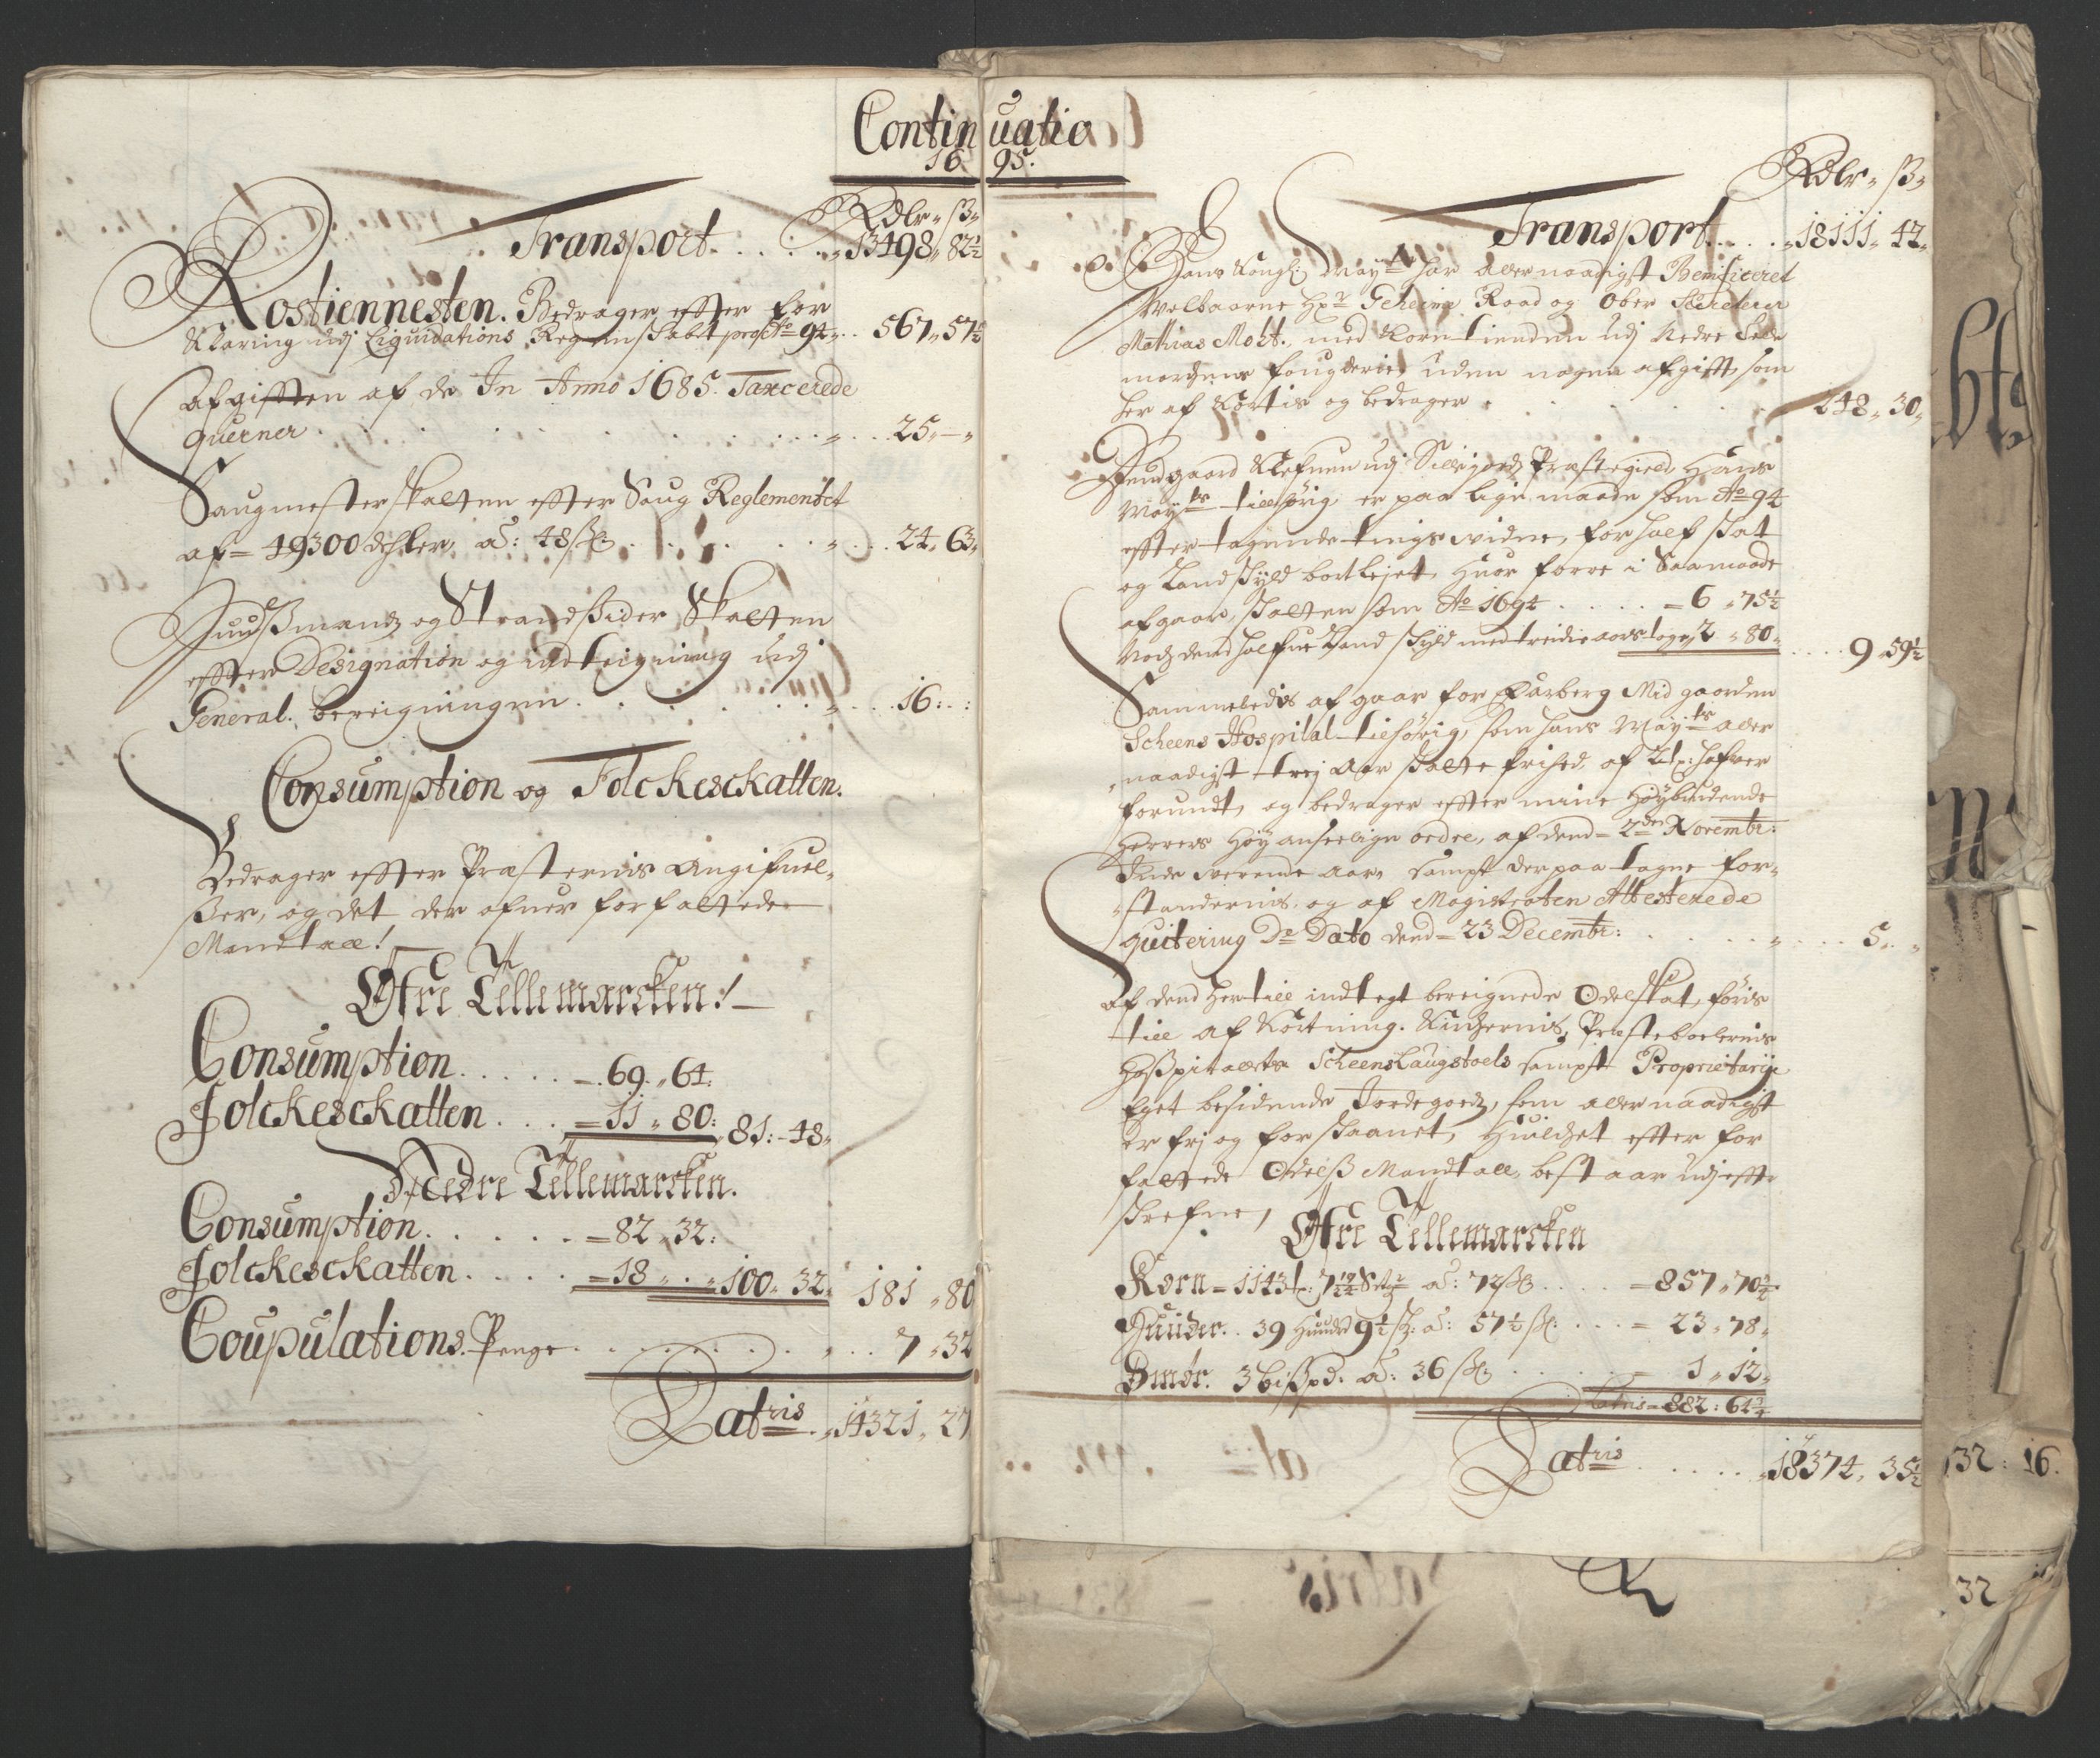 Continuatio
1695.
Rdlr ß
Transport . . . . 13498 82½
Rostiennesten. Bedrager effter for
Klaring udj Liquidations Regenskabet pro Ao 94 . . 567 57½
Afgifften af de In Anno 1685. Taxcerede
querner . . . . 25 –
Saugmesterskatten effter Saug Reglementet
af 49300 dehler, ad: 48 ß . . . . 24 63
Huußmandz og Strandsider Skatten
effter Designation og indteigning udj
General. bereigningen . . . . 16 : :
Consumption og Folckeskatten.
Bedrager effter Præsternis Angifuel-
ßer, og det der ofuer forfattede
Mandtall!
Øfre Tellemarcken!
Consumption . . . . 69 64:
Folckesckatten . . . 11 80: 81: 48
Nedre Tellemarcken.
Consumption . . . . 82 32:
Folckesckatten . . . . 18 . 100 32 181 80
Coupulations Penge . . . . 7 32
Latris 14321 27
Rdlr ß
Transport . . . . 18111 42
Hans Kongl: Maytt har allernaadigst Benificeret
Welbaarne Hr Geheime Raad og Ober
Mathias Moht. med Korntienden udj Nedre Telle
mordens fougderie, uden nogen afgifft, som
her af Kortis og bedrager . . . 248 30
Ødegaard udj Præstegield, Hans
Maytts tillhørig er paa lige maade som Ao 94
effter tagende tingsvidne, for half skat
og Landskyld bortlejet, huor forre i Saamaade
afgaar, skatten som Ao 1694 . . . . 6 75½
Noch dend halfue Land skyld med treidie aars tage 2 80 . . . 9 59½
Sammeledis af gaar for Barberg Mid gaarden
Scheens Hospital tilhørig, som hans Maytts aller
naadigst trej Aar skatte frihed, af hafuer
forundt, og bedrager effter mine Høybiudende
Herrers Høy anseelige ordre, af dend 2den Novembr:
Inde werende aar, sampt derpaa tagne for-
standernis og af Magistraten Attesterede
quitering De Dato dend 23 Decembr: . . . . 5
Af dend hertill indtegt bereignede Odelskat, føris
till af Kortning. Kirchernis, Præsteboelernis
Hoßpitalets Scheens Laugstoels sampt Proprietarije
Eget besidende Jordegodz, som allernaadigst
er frj og forskaanet, Huilchet effter for
fattede Odelß Mandtall, bestaar udj effter
skrefne,
Øfre Tellemarcken
Korn 1143 t: ad: 72 ß . . . . 857 70¾
Huuder. . 39 Huuder 9½ ad: 57½ ß . . . 23 78
Smør. 3 bißpd. ad: 36 ß . . . . 1 12
Latris 882: 64¾
Latris . . . . 18374 35½
32: 16.
32